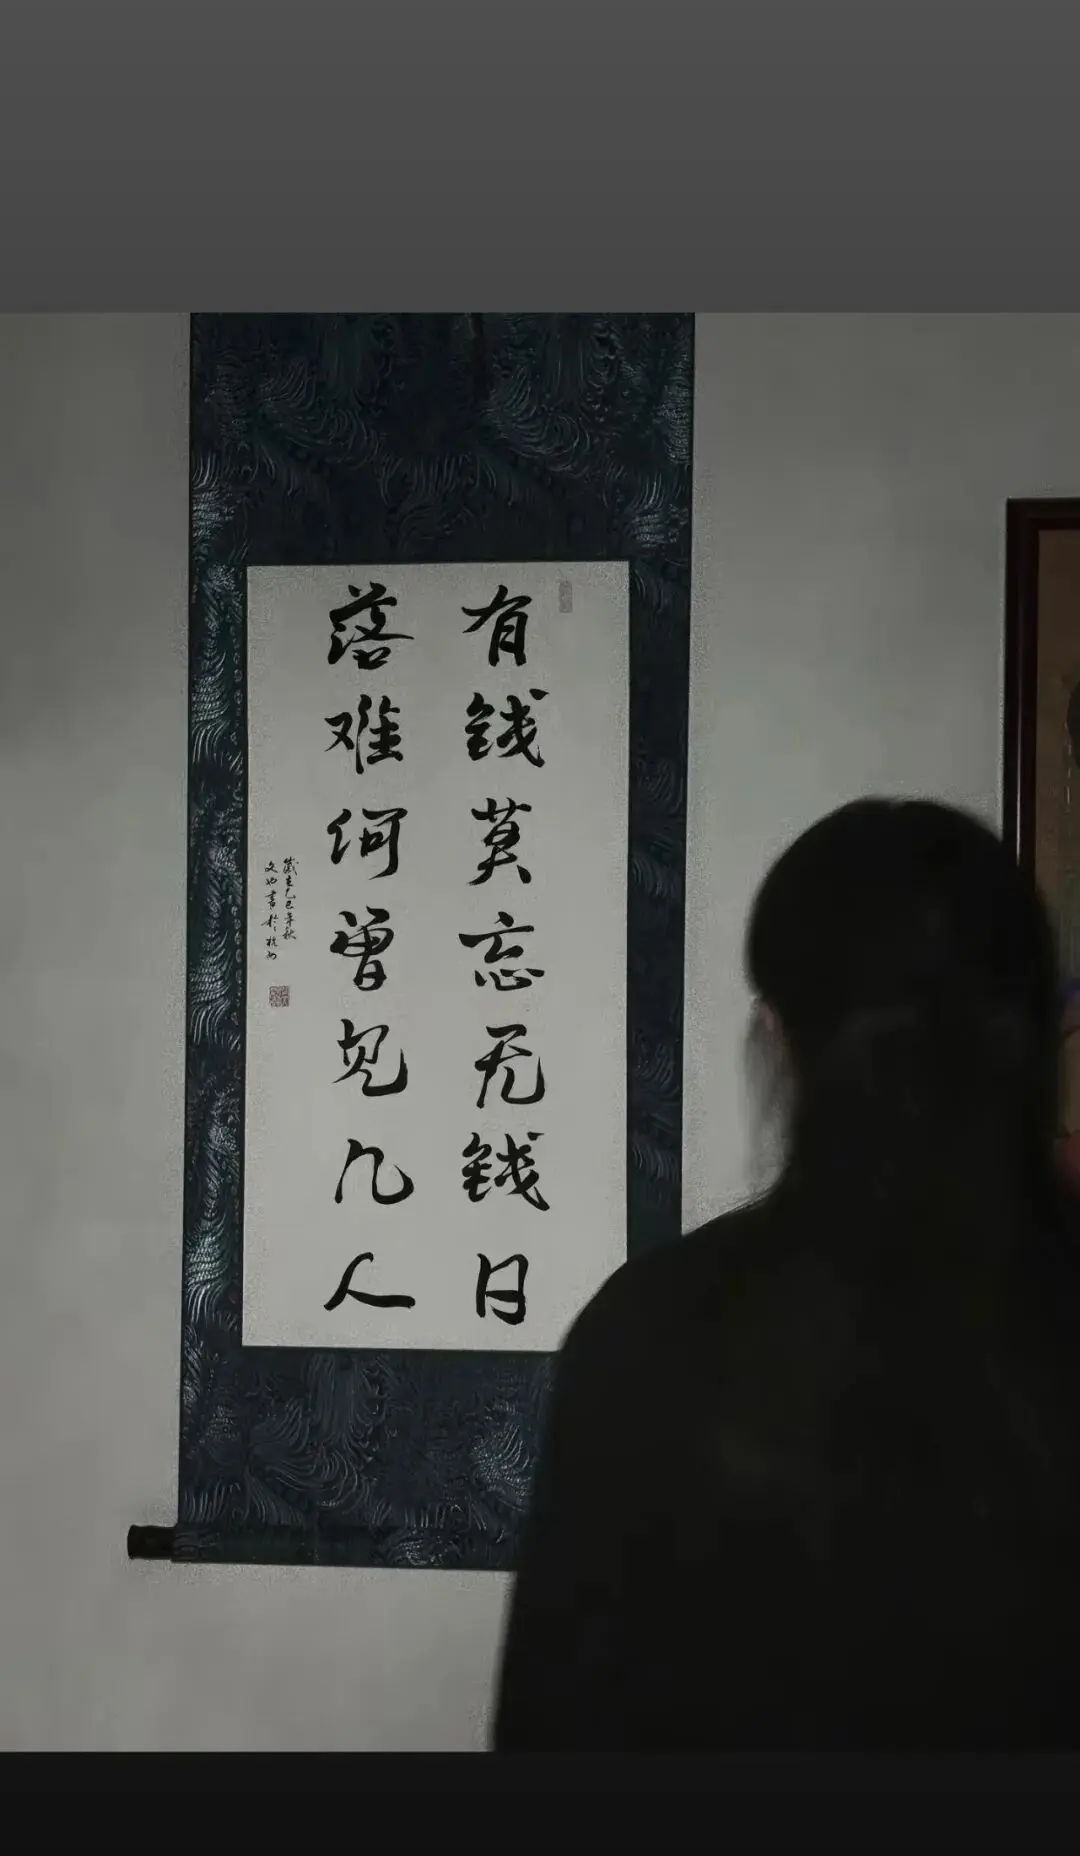 有钱莫忘无钱日
落难何曾见几人
岁在乙巳年秋
文也书于杭州